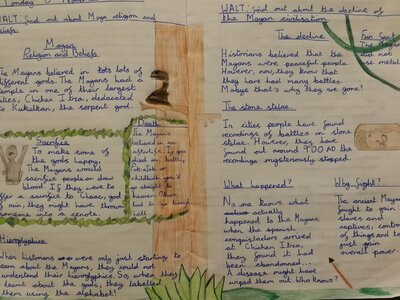 WALT: find out about Maya religion and
beliefs.
Mayas
Religion and Beliefs
The Mayans believed in lots lots of
different gods. The Mayans had a
temple in one of their largest
cities, Chicken Itza, dedacated
to Kukulkan, the serpent god.
Sacrafice
To make some of
the gods happy,
The Mayans would
sacrfice people or draw
blood. If they were to
offer a sacrifice to Chaac, god
rain, they might have thrown
someone into a senote.
Death
The Mayans
believed in an
If you
died in battle,
sacrafice or
childbirth, you'd
go straight to
heaven. Other
through
hell
Hieroglyphics.
When historians were only just starting to
learn about the Mayans, they could not
understand their hieroglyphics. So, when they
learnt about the gods, they labelled
them using the alphabet!
WALT: find out about the decline of
the Mayan civilisation.
The decline
Historians believed that the
Mayans were peaceful people.
However, now, they know that
they have had many battles.
Matye that's why they are gone?
Fun Fact
The
did not
use metal
The stone stelae.
In cities people have found
recordings of battles in stone
stelae. However, they have
found out around 900 AD the
recordings mysteriously stopped.
What happened?
No one knows what
actualy
happened to the Mayans,
when the spanish
conquistadors arrived
at Chicken Itza,
they found it had
been abandoned...
A disease might have
wiped them out Who knows?
Why fight?
The ancient Mayans
fought to gain
slaves and
captives, control
of things and to
just gain
overall power.